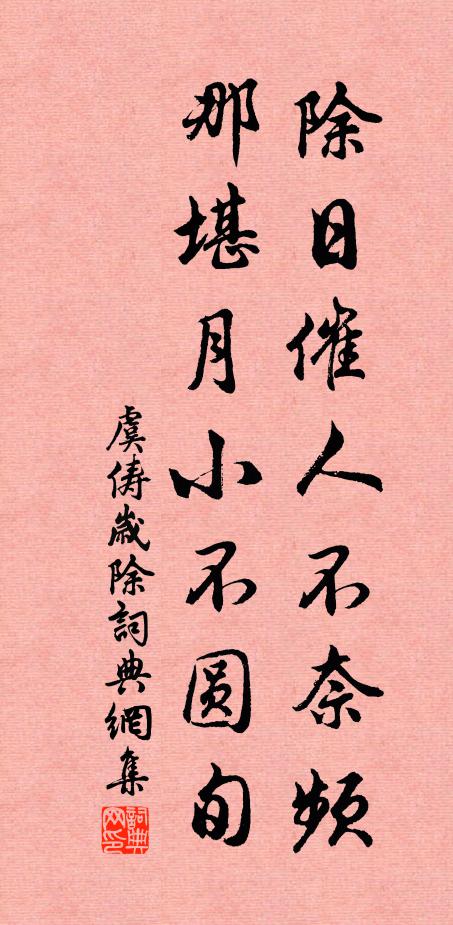 除日催人不奈频
那堪月小不圆旬
虞俦歲除詞典網集
詞典网印